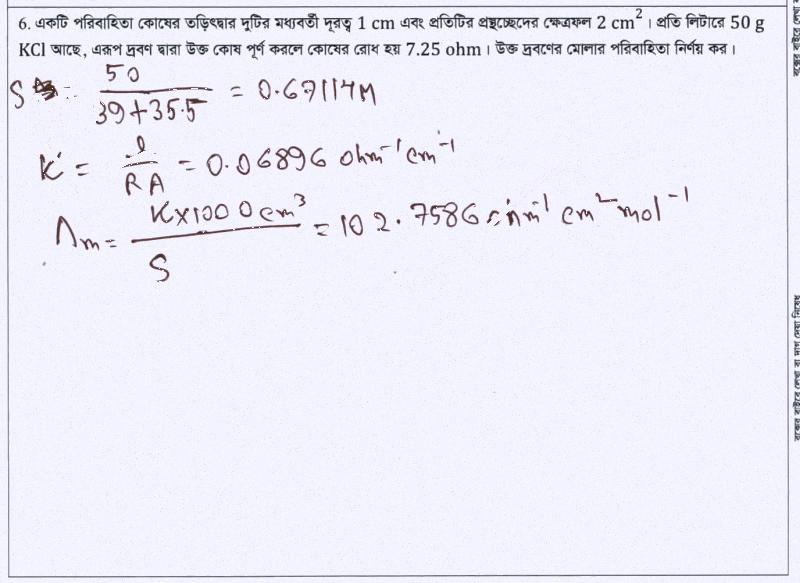 6. একটি পরিবাহিতা কোষের তড়িৎদ্বার দুটির মধ্যবর্তী দূরত্ব 1 cm এবং প্রতিটির প্রস্থচ্ছেদের ক্ষেত্রফল 2 cm²। প্রতি লিটারে 50 g
KCl আছে, এরূপ দ্রবণ দ্বারা উক্ত কোষ পূর্ণ করলে কোষের রোধ হয় 7.25 ohm। উক্ত দ্রবণের মোলার পরিবাহিতা নির্ণয় কর।
S = 50 / 39+35.5 = 0.67114M
K = l / RA = 0.06896 ohm⁻¹ cm⁻¹
Λm = K×1000cm³ / S = 102.7586 ohm⁻¹ cm² mol⁻¹